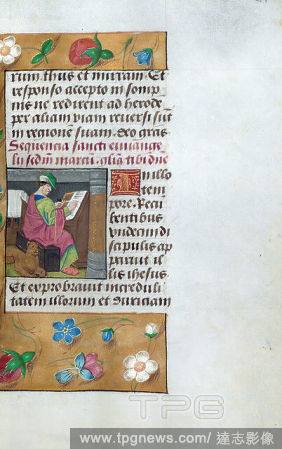 rum thus et mirram. Et
responso accepto in somp
nis ne redirent ad herode
per aliam viam reversi sūt
in regionē suam. deo gras
Sequencia sancti euuange
lii scdm̄ marcū. glīa tibi dn̄e
In illo
tem
pore. Recū
bentibus
undecim di
scipulis ap
paruit il
lis ihesus
Et exprobravit incredu
litatem illorum et duriciam
TPG
www.tpgnews.com/ 達志影像